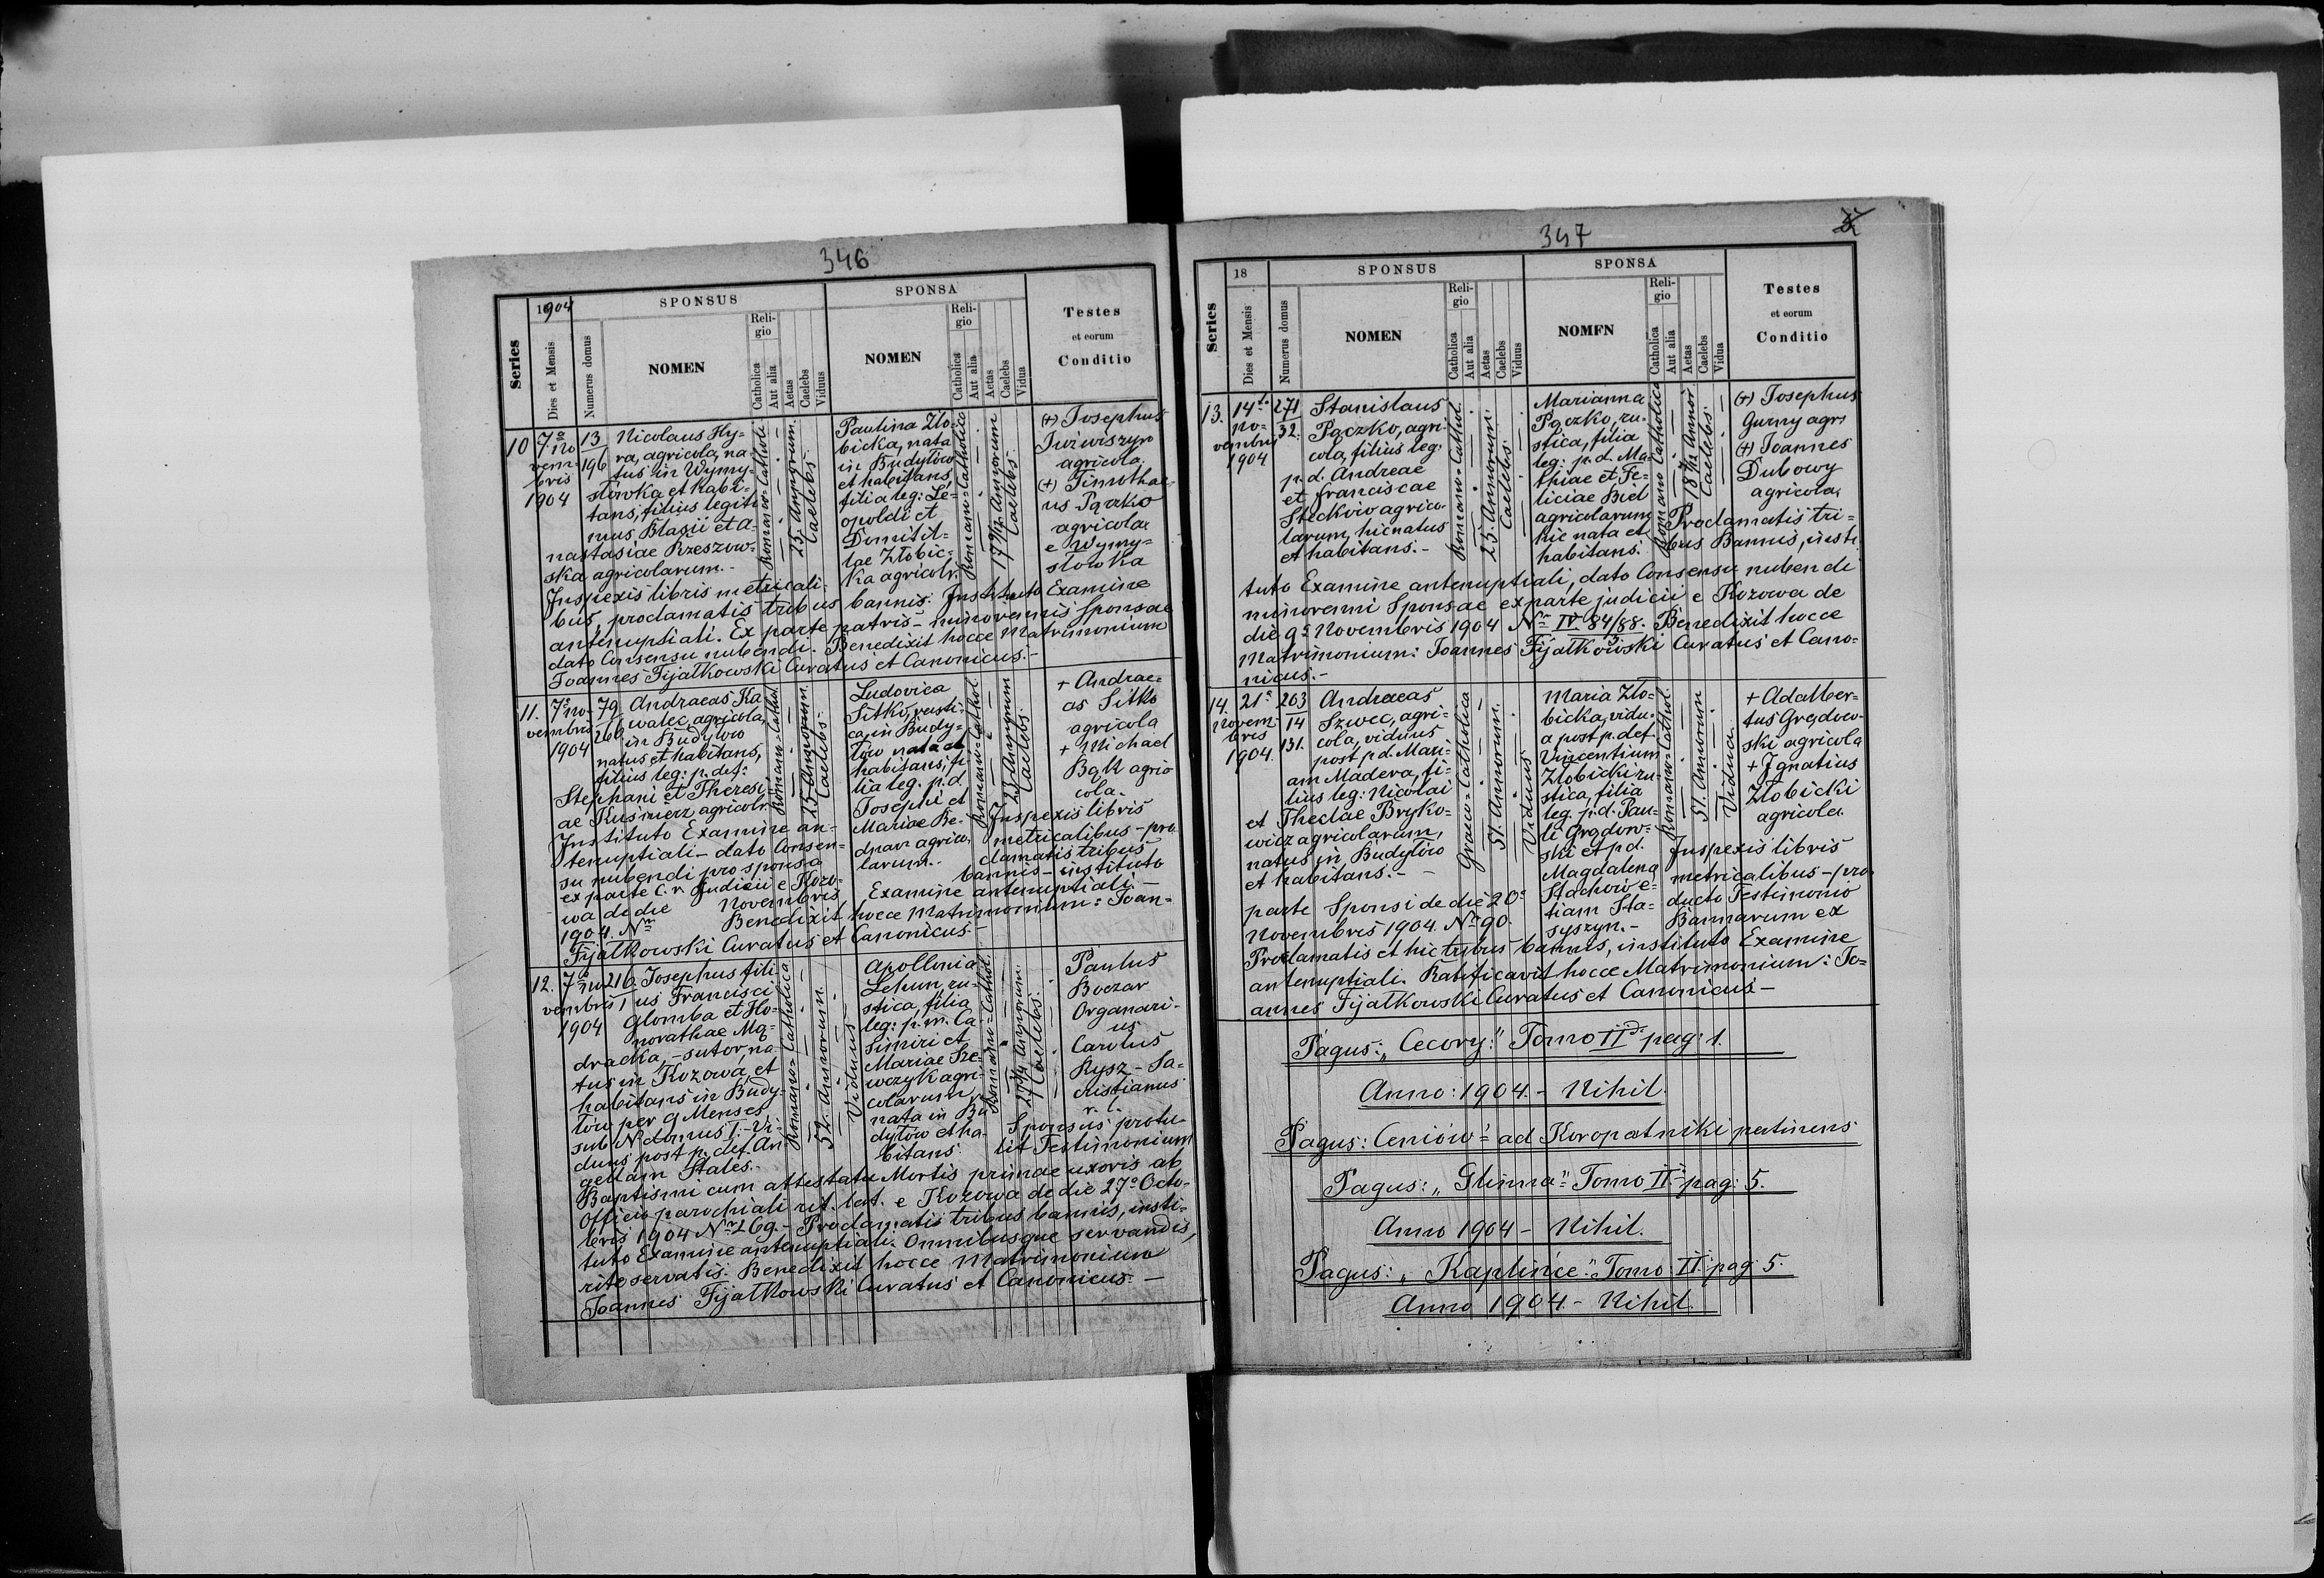 346
1904
SPONSUS
SPONSA
Series
Dies et Mensis
Numerus domus
NOMEN
Reli-
gio
Catholica
Aut alia
Aetas
Caelebs
Viduus
NOMEN
Reli-
gio
Catholica
Aut alia
Aetas
Caelebs
Vidua
Testes
et eorum
Conditio
10
7a no
vem-
bris
1904
13
196
Nicolaus Hy-
ra, agricola, na
tus in Wymy-
słowka et habi-
tans, filius legiti
mus Blasii et A-
nastasiae Rzeszow-
ska agricolarum.-
Romano-Cathol.
25. Annorum.
Caelebs.
Paulina Zło-
bicka, nata
in Budyłow
et habitans,
filia leg: Le-
opoldi et
Domitil-
lae Złobic-
ka agricolr.
Romano-Catholica
Annorum
Caelebs.
(+) Josephus
Iwiwiszyn
agricola.
(+) Timothae
us Pączko
agricola
e Wymy-
słowka
Inspexis libris metricali-
bus, proclamatis tribus bannis. Instituto Examine
antenuptiali. Ex parte patris - minorennis Sponsae
dato Consensu nubendi. Benedixit hocce Matrimonium
Joannes Fijałkowski Curatus et Canonicus.-
11.
7a no-
vembris
1904
79
260
Andraeas Ka
walec, agricola,
in Budyłow
natus et habitans,
filius leg: p. def:
Stephani et Theresi-
ae Kuśnierz agricolr.
Romano-Cathol.
25 Annorum.
Caelebs.
Ludovica
Sitko, rusti-
ca, in Budy-
łow nata et
habitans, fi-
lia leg. p. d.
Josephi et
Mariae Be-
dnarz agrico
larum.-
Romano-Cathol.
23 Annorum
Caelebs.
+ Andrae-
as Sitko
agricola
+ Michael
Bąk agrio
cola.
Instituto Examine an-
tenuptiali - dato Consen-
su nubendi pro sponsa
ex parte C. r. Judicii e Kozo-
wa de die Novembris
1904. Nr
Inspexis libris
metricalibus - pro
clamatis tribus
bannis - instituto
Examine antenuptiali -
Benedixit hocce Matrimonium: Joan-
Fijałkowski Curatus et Canonicus.-
12.
7a no
vembris
1904
216
1
Josephus fili-
us Francisci
Glomba et Ho-
norathae Mą-
dracka, - sutor, na-
tus in Kozowa, et
habitans in Budy-
łow per 9 Menses
sub N domus I. - Vi-
duus post p. def. An
gellam Hales.-
Romano-Catholica
52. Annorum.
Viduus
Apollonia
Lehun, ru-
stica, filia
leg: p. m. Ca
simiri et
Mariae Sze-
wczyk agri-
colarum,
nata in Bu
dyłow et ha-
bitans.
Romano-Cathol.
27 1/4 Annorum
Caelebs.
Paulus
Boczar
Organari-
us
Carolus
Rysz - Sa-
cristianus
r. l.
Sponsus protu-
lit Testimonium
Baptismi cum attestatu Mortis primae uxoris ab
Officio parochiali rit. lat. e Kozowa de die 27a Octo-
bris 1904 Nr 269.- Proclamatis tribus bannis, insti-
tuto Examine antenuptiali. Omnibusque servandis,
rite servatis. Benedixit hocce Matrimonium
Joannes Fijałkowski Curatus et Canonicus.-
347
18
SPONSUS
SPONSA
Series
Dies et Mensis
Numerus domus
NOMEN
Reli-
gio
Catholica
Aut alia
Aetas
Caelebs
Viduus
NOMEN
Reli-
gio
Catholica
Aut alia
Aetas
Caelebs
Vidua
Testes
et eorum
Conditio
13.
14a
no-
vembris
1904
271
32.
Stanislaus
Pączko, agri-
cola, filius leg:
p. d. Andreae
et Franciscae
Steckow agrico-
larum, hic natus
et habitans.-
Romano-Cathol.
25. Annorum.
Caelebs.
Marianna
Pączko, ru-
stica, filia
leg: p. d. Ma-
thiae et Fe-
liciae Biel
agricolarum
hic nata et
habitans.
Romano Catholica
Annor.
Caelebs.
(+) Josephus
Gurny agr.
(+) Joannes
Dubowy
agricola.
Proclamatis tri-
bus Bannis, insti
tuto Examine antenuptiali, dato Consensu nubendi
minorenni Sponsae ex parte judicii e Kozowa de
die 9a Novembris 1904 Nr IV 84/88. Benedixit hocce
Matrimonium: Joannes Fijałkowski Curatus et Cano-
nicus.-
14.
21a
Novem-
bris
1904
203
14
131.
Andraeas
Szwec, agri-
cola, viduus
post p. d. Mari-
am Madera, fi-
lius leg: Nicolai
et Theclae Bryko-
wicz agricolarum,
natus in Budyłow
et habitans.-
Graeco-Catholica
51. Annorum.
Viduus
Maria Zło-
bicka, vidu-
a post p. def
Vincentium
Złobicki ru-
stica, filia
leg. p. d. Pau-
li Grądow-
ski et p. d.
Magdalena
Stachowie-
tiam Sta-
syszyn.-
Romano-Cathol.
51. Annorum
Vidua.
+ Adalber-
tus Grądow-
ski agricola
+ Ignatius
Złobicki
agricola.
Inspexis libris
metricalibus - pro
ducto Testimonio
Bannarum ex
parte Sponsi de die 20a
Novembris 1904. Nr 90.
Proclamatis et hic tribus bannis, instituto Examine
antenuptiali. Ratificavit hocce Matrimonium: Jo-
annes Fijałkowski Curatus et Canonicus -
Pagus: „Cecory." Tomo II pag: 1.
Anno: 1904.- Nihil.
Pagus: Ceniów - ad Koropatniki pertinens
Pagus: „Glinna" Tomo II pag: 5.
Anno 1904 - Nihil.
Pagus: „Kaplińce." Tomo II pag 5.
Anno 1904.- Nihil.